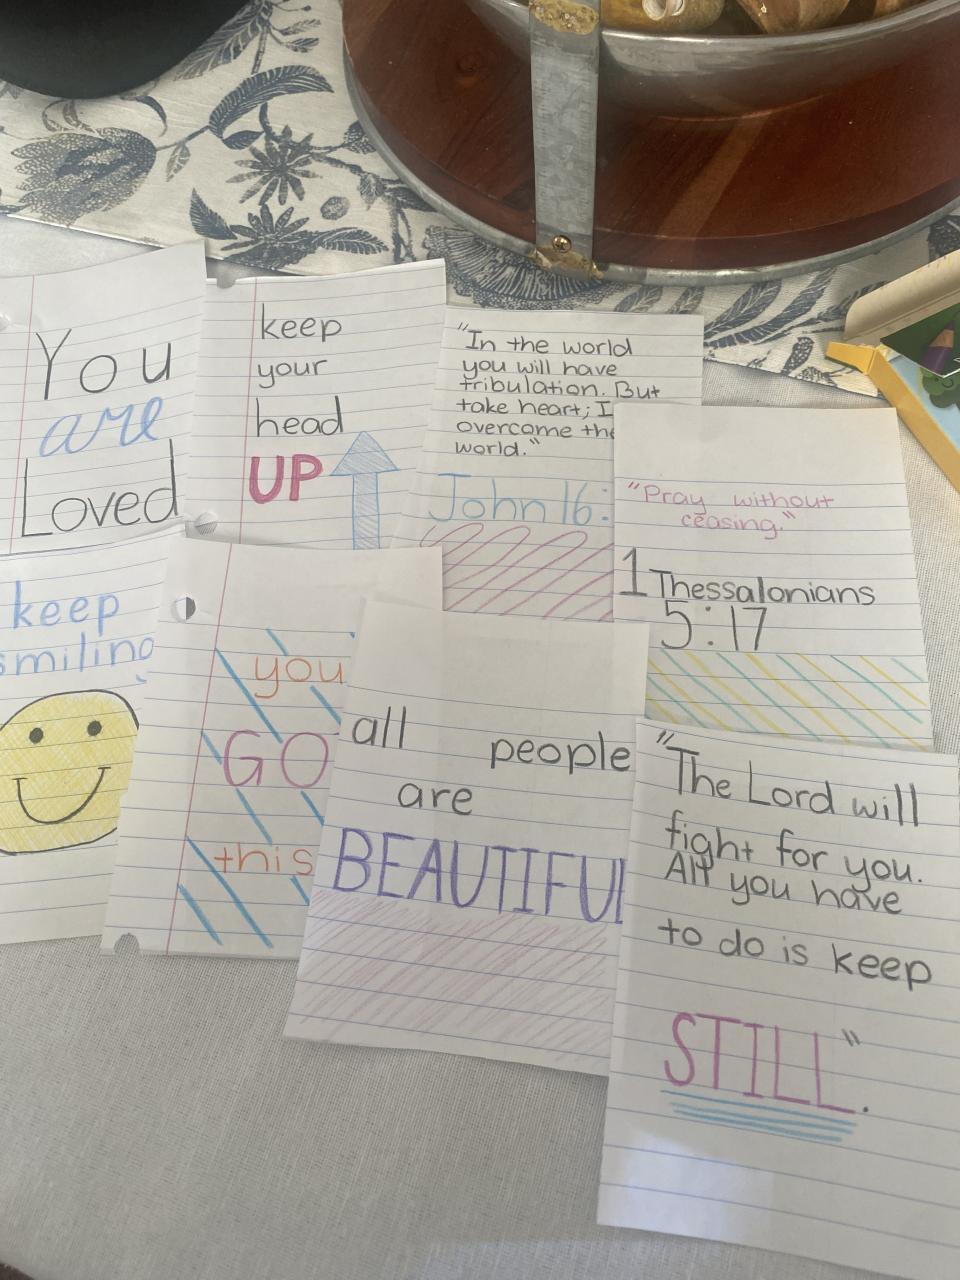 You
are
Loved
keep
your
head
UP
"In the world
you will have
tribulation. But
take heart; I
overcome the
world."
John 16:
"Pray without
ceasing."
1 Thessalonians
5:17
keep
smiling
you
GO
this
all people
are
BEAUTIFUL
"The Lord will
fight for you.
All you have
to do is keep
STILL".